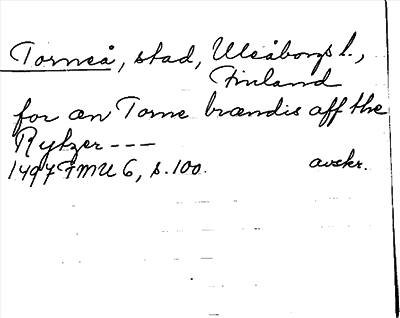 Torneå, stad, Uleåborgs l.,
Finland
for æn Torne brændis aff the
Rytzer ---
1497 FMU 6, s. 100. avskr.